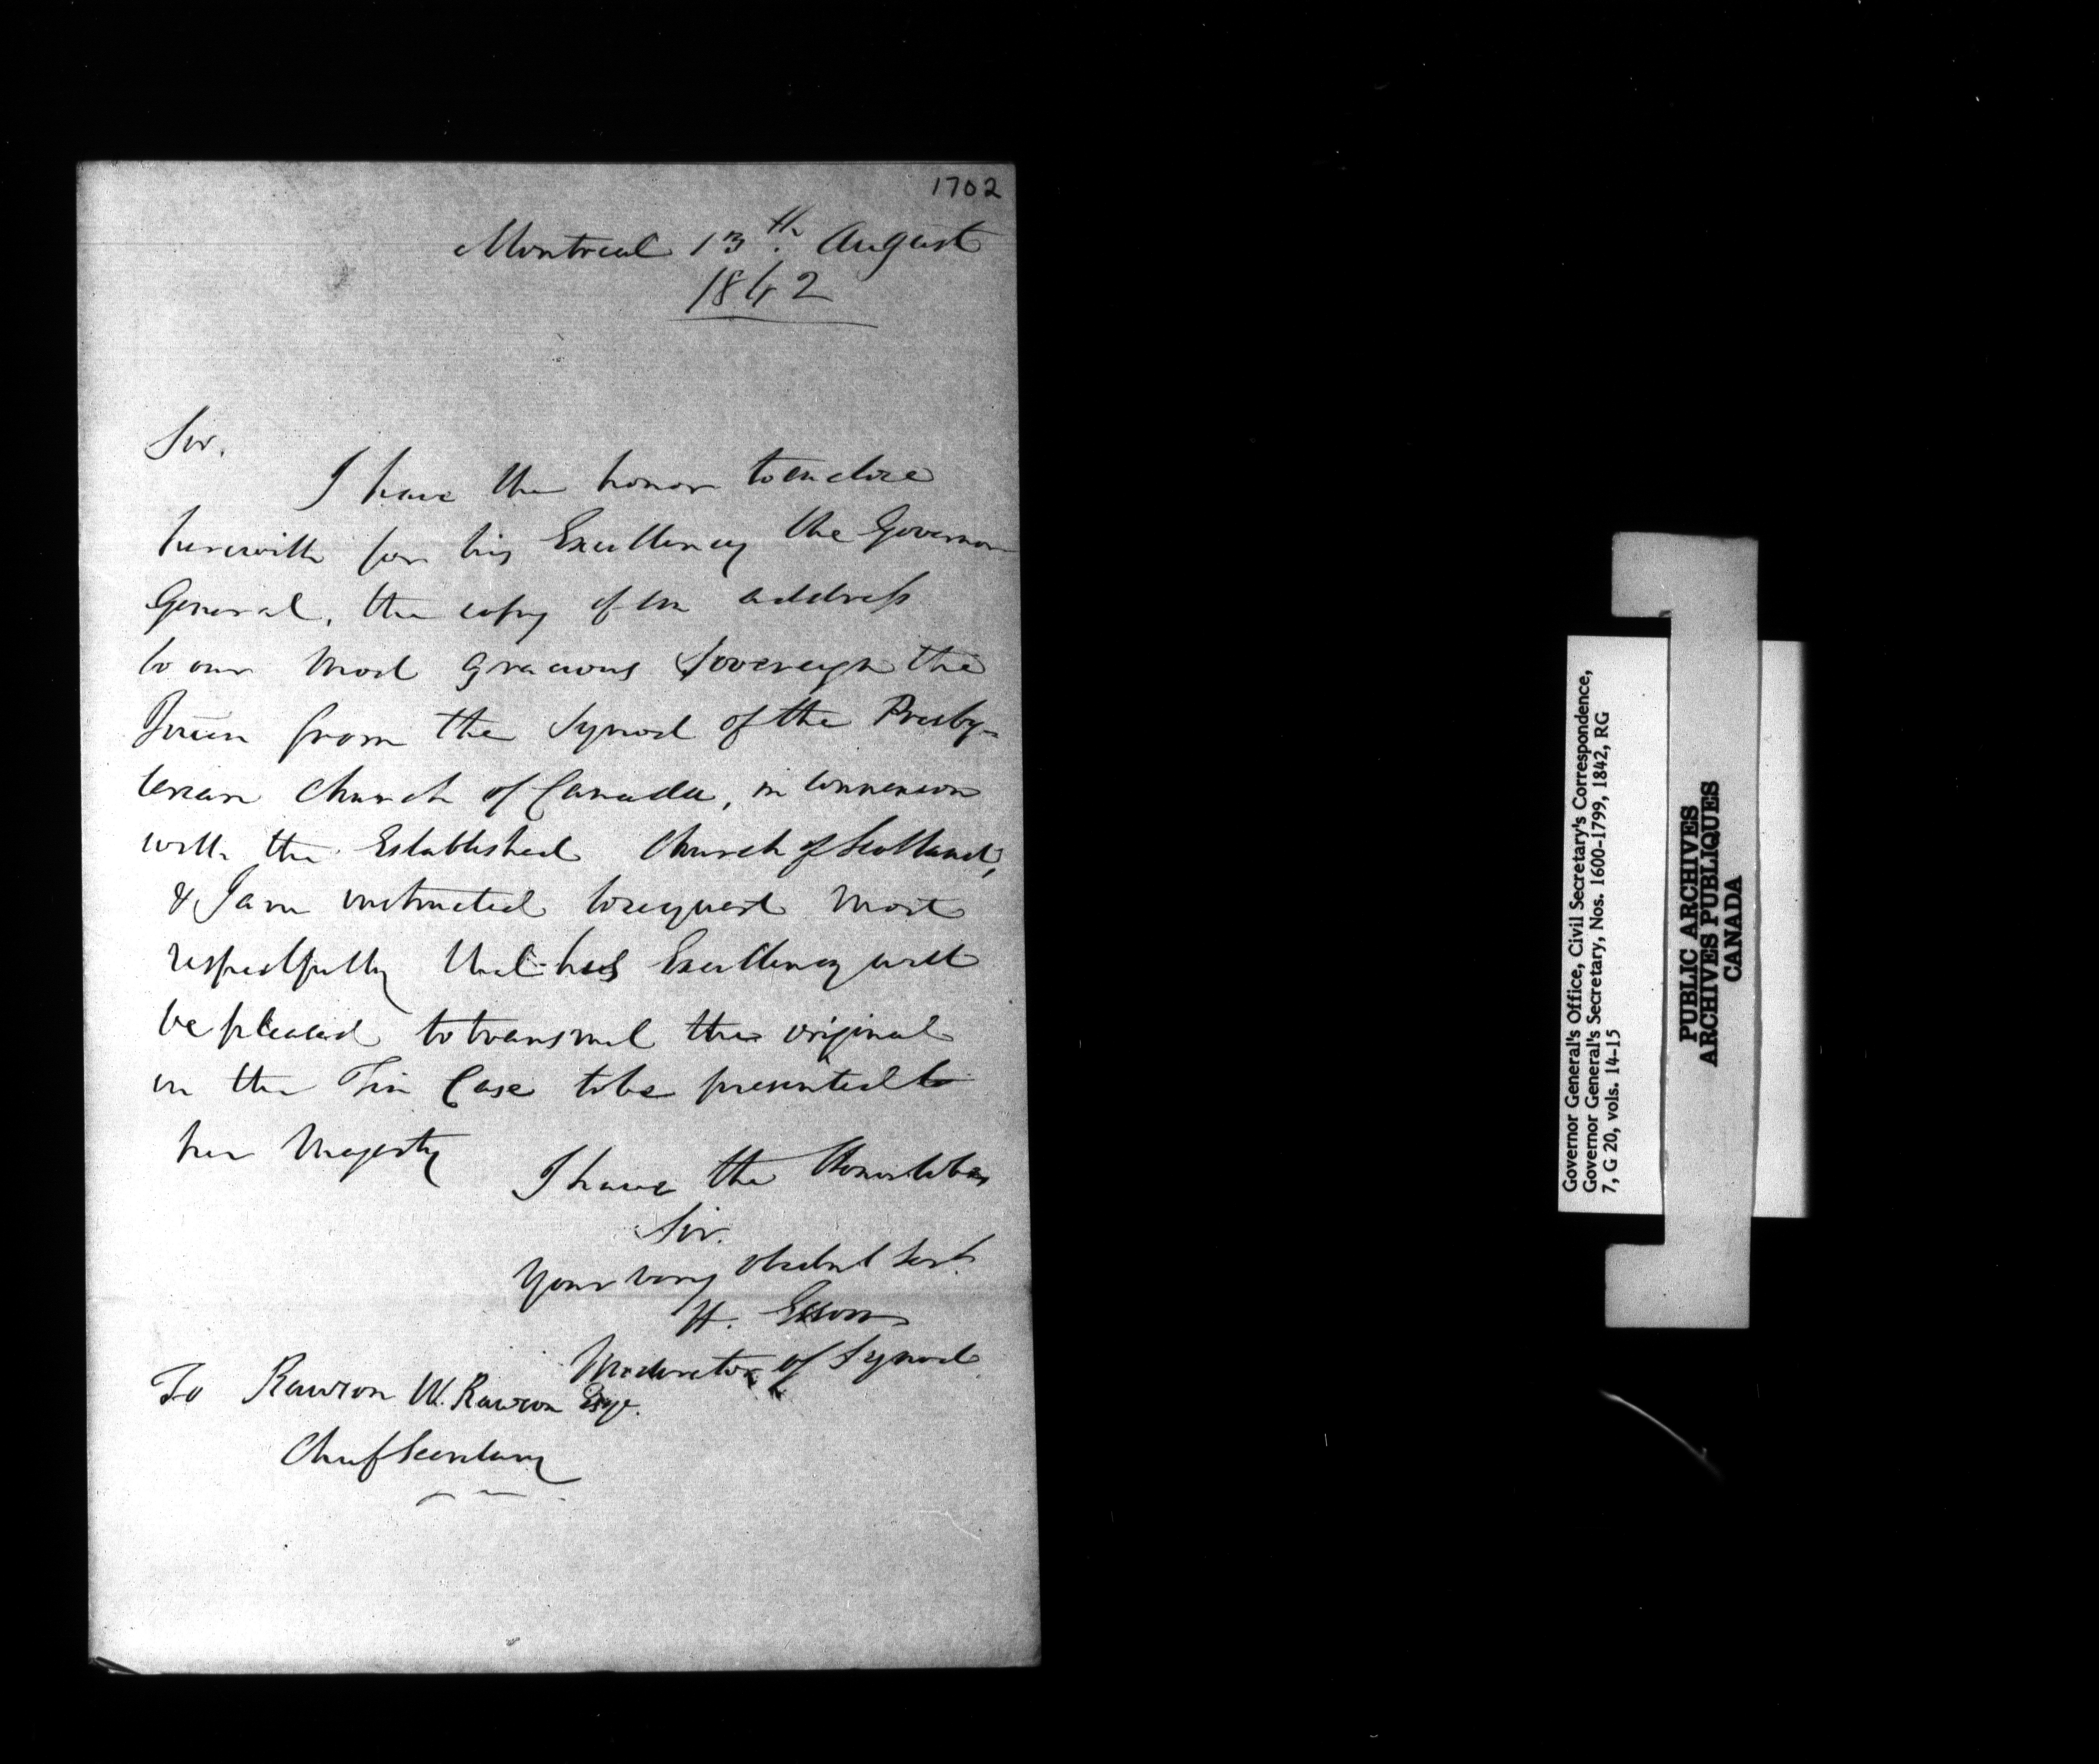 1702
Montreal 13th. August
1842
Sir.
I have the honor to enclose
herewith for his Excellency the Governor
General, the copy of an address
to our most gracious Sovereign the
Queen from the Synod of the Presby-
terian Church of Canada, in connexion
with the Established Church of Scotland,
& I am instructed to request most
respectfully that his Excellency will
be pleased to transmit the original
in the Tin Case to be presented to
her Majesty
I have the Honor to be
Sir.
Your very obedient Servt.
H. Esson
Moderator of Synod
To Rawson W. Rawson Esqe.
Chief Secretary
Governor General's Office, Civil Secretary's Correspondence,
Governor General's Secretary, Nos. 1600-1799, 1842, RG
7, G 20, vols. 14-15
PUBLIC ARCHIVES
ARCHIVES PUBLIQUES
CANADA